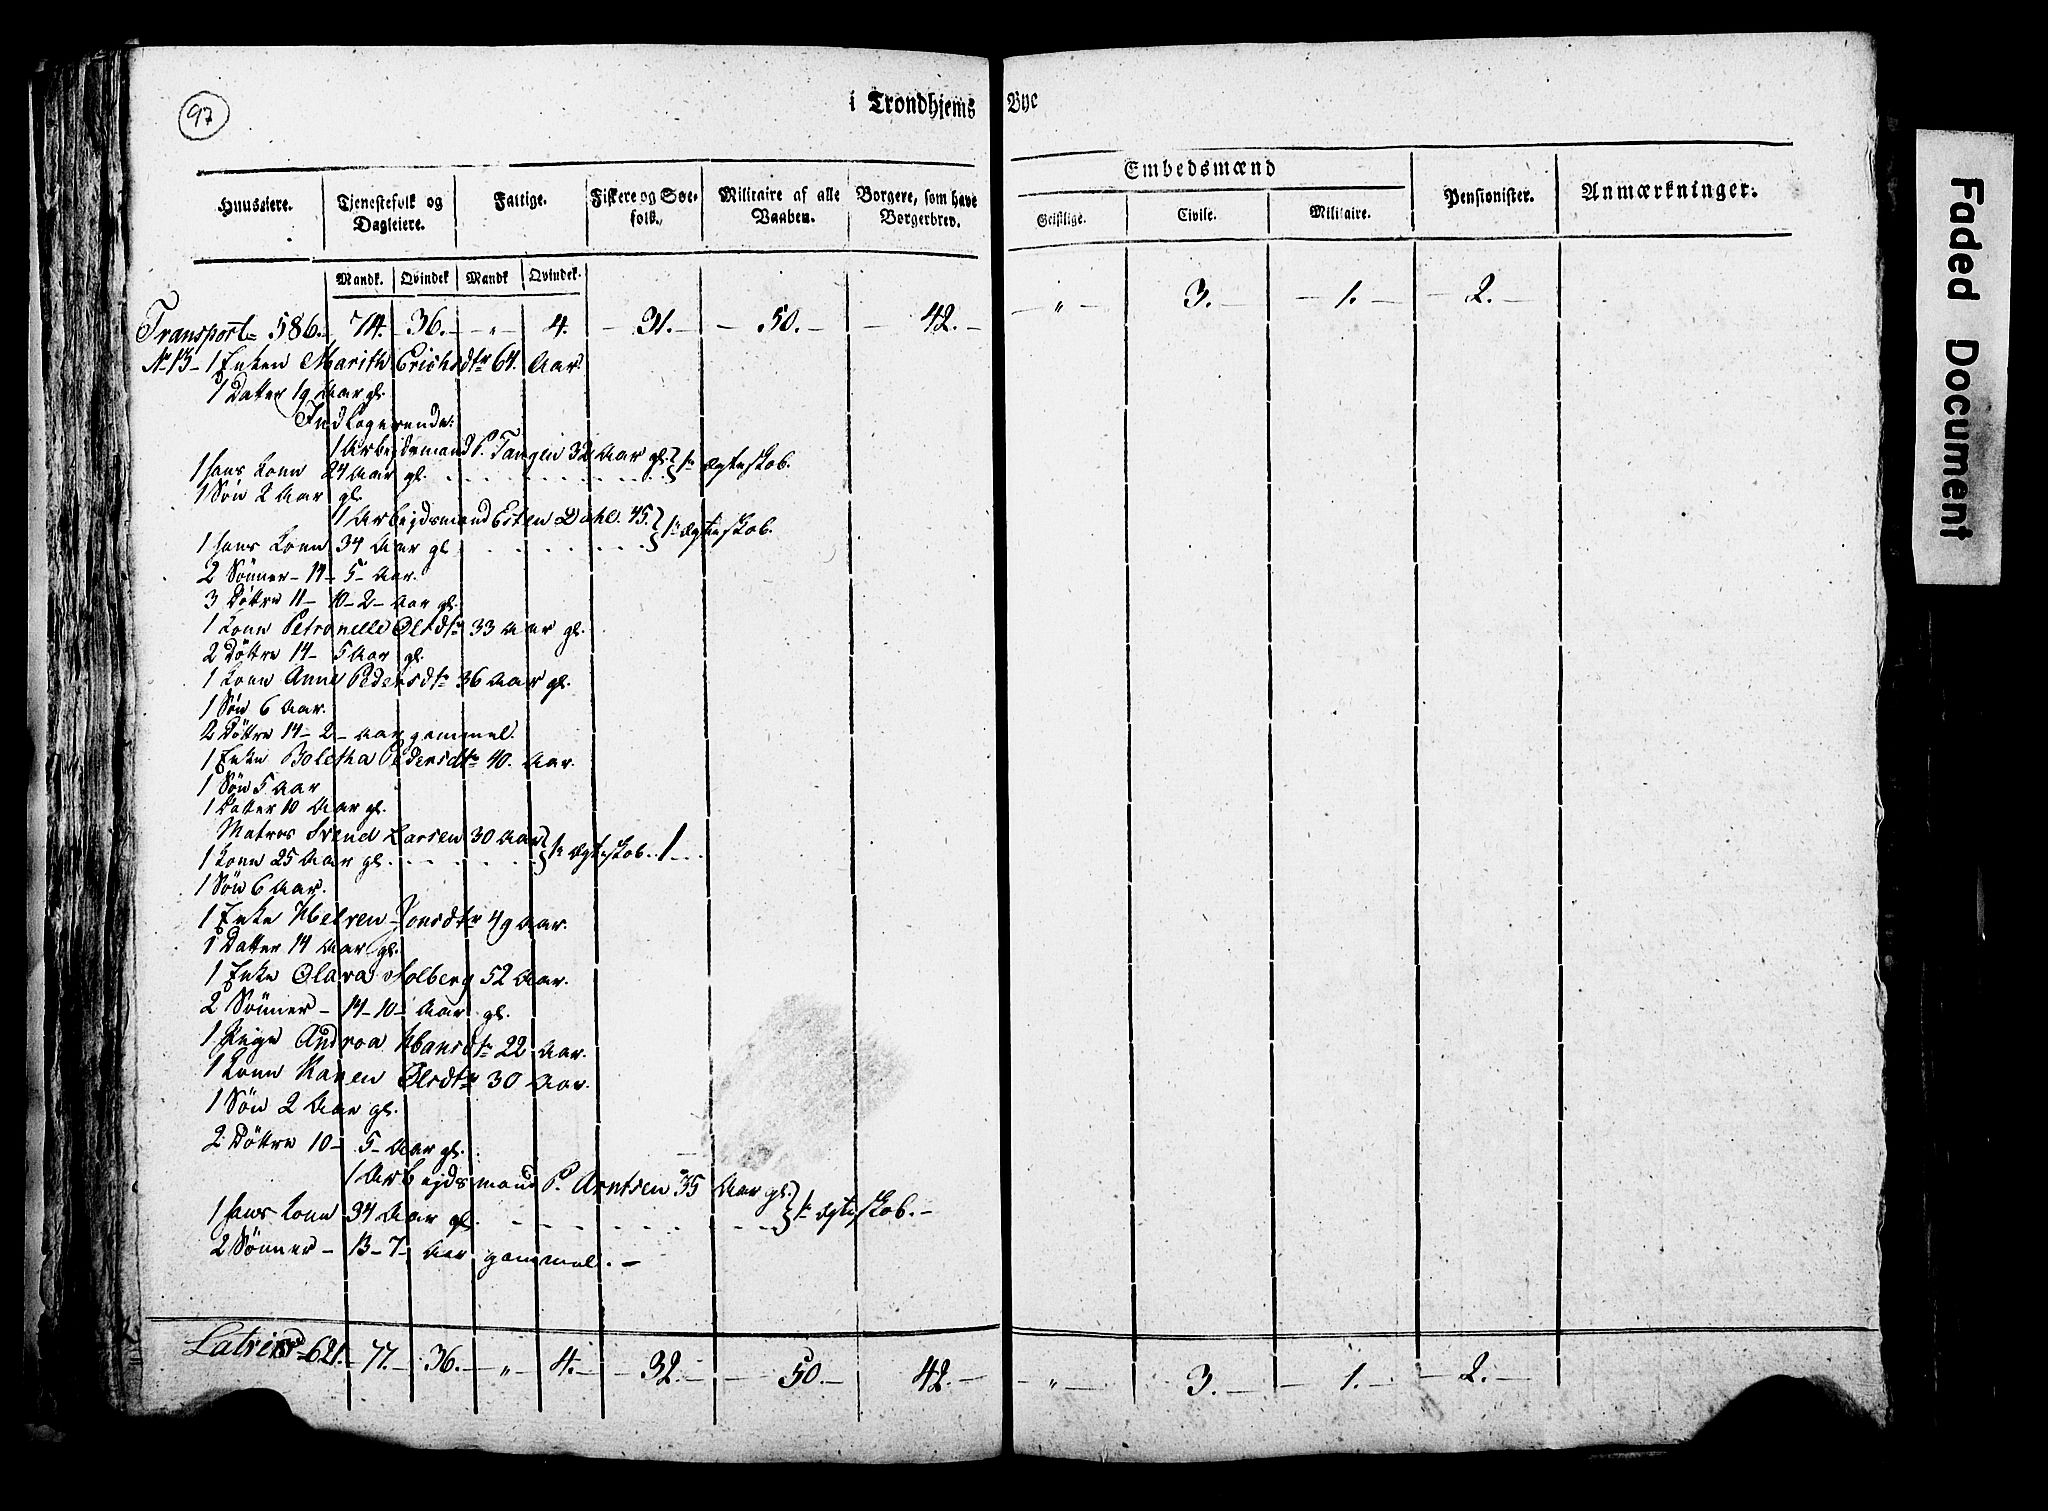 97
i Trondhjems Bye
Embedsmænd
Huuseiere. Tjenestefolk og Dagleiere. Fattige. Fiskere og Søe-folk. Militaire af alle Vaaben. Borgere, som have Borgerbrev. Geistlige. Civile. Militaire. Pensionister. Anmærkninger.
Mandk. Qvindek Mandk Qvindek.
Transport 586. 74. 36. „ 4. 31. 50. 42. „ 3. 1. 2.
No 13 - 1 Enken Marith Erichsdtr 64. Aar.
1 Datter 19 Aar gl.
Indlogerende:
1 Arbejdsmand P. Tangen 32 Aar gl. } 1te Ægteskab.
1 hans Kone 24 Aar gl.
1 Søn 2 Aar gl.
1 Arbejdsmand Esten Dahl. 45. } 1te Ægteskab.
1 hans Kone 34 Aar gl
2 Sønner - 14 - 5 - Aar.
3 Døttre 11 - 10 - 2 - Aar gl.
1 Kone Petronelle Olsdtr 33 Aar gl.
2 Døttre 14 - 5 Aar gl.
1 Kone Anne Pedersdtr 36 Aar gl.
1 Søn 6 Aar.
2 Døttre 14 - 2 - Aar gammel.
1 Enke Boletha Pedersdtr 40. Aar.
1 Søn 5 Aar
1 Datter 10 Aar gl.
Matros Svend Larsen 30 Aar } 1te Ægteskab. 1
1 Kone 25 Aar gl.
1 Søn 6 Aar.
1 Enke Jonsdtr 49 Aar.
1 Datter 14 Aar gl.
1 Enke Olava Solberg 52 Aar.
2 Sønner - 14 - 10 - Aar gl.
1 Pige Andrea Hansdtr 22 Aar.
1 Kone Karen Olsdtr 30 Aar.
1 Søn 2 Aar gl.
2 Døttre 10 - 5 - Aar gl.
1 Arbejdsmand P. Arntsen 35 Aar gl. } 1te Ægteskab. -
1 hans Kone 34 Aar gl.
2 Sønner - 13 - 7 - Aar gammel. -
621. 77. 36. „ 4. 32. 50. 42. „ 3. 1. 2.
Faded Document